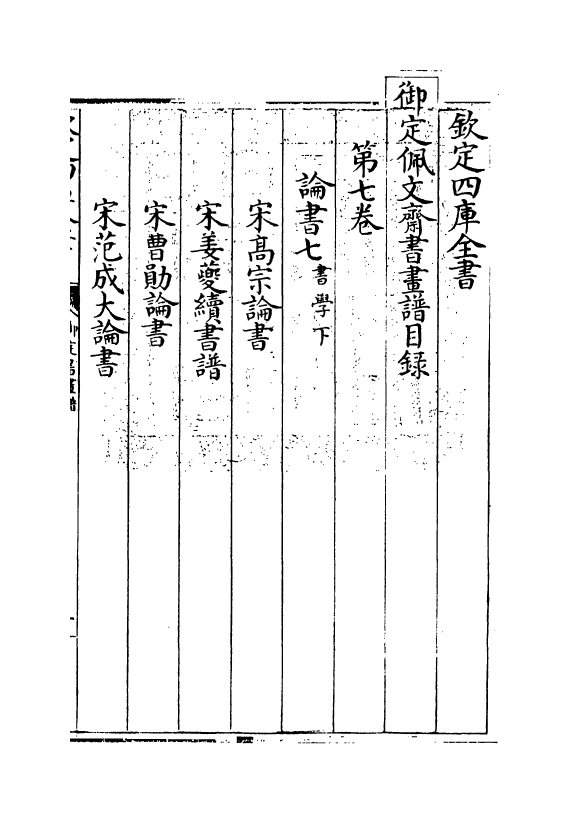 欽定四庫全書
御定佩文齋書畫譜目録
第七卷
論書七書學下
宋高宗論書
宋姜夔續書譜
宋曹勛論書
宋范成大論書